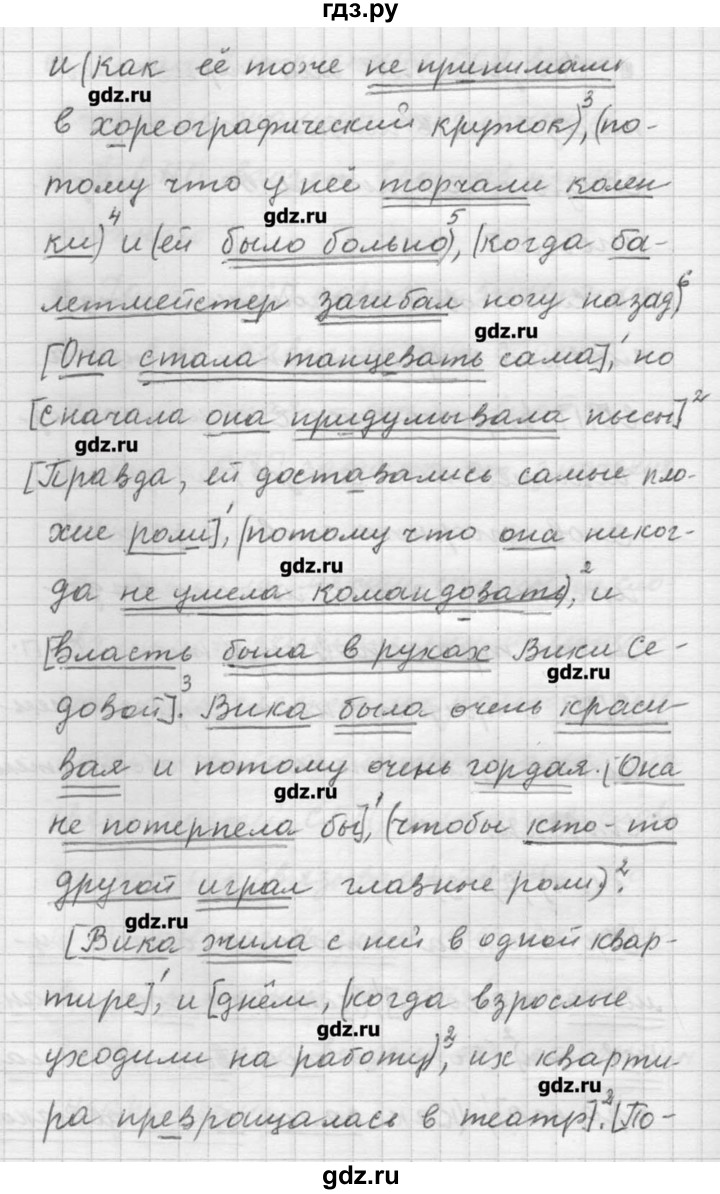 гдз.ру
и (как её тоже не принимали
gdz.ru
в хореографический кружок)³, (по-
тому что у неё торчали колен
gdz.ru
ки)⁴ и (ей было больно)⁵, (когда ба-
летмейстер загибал ногу назад)⁶
gdz.ru
[Она стала танцевать сама]¹, но
[сначала она придумывала пьесы]²
gdz.ru
[Правда, ей доставались самые пло-
хие роли]¹, (потому что она никог-
gdz.ru
да не умела командовать)², и
[власть была в руках Вики Се-
gdz.ru
довой]³. Вика была очень краси
вая и потому очень гордая. [Она
gdz.ru
не потерпела бы]¹, (чтобы кто-то
другой играл главные роли)².
gdz.ru
[Вика жила с ней в одной квар-
тире]¹, и [днём, (когда взрослые
gdz.ru
уходили на работу)², их кварти-
gdz.ru
ра превращалась в театр]². [По-
gdz.ru